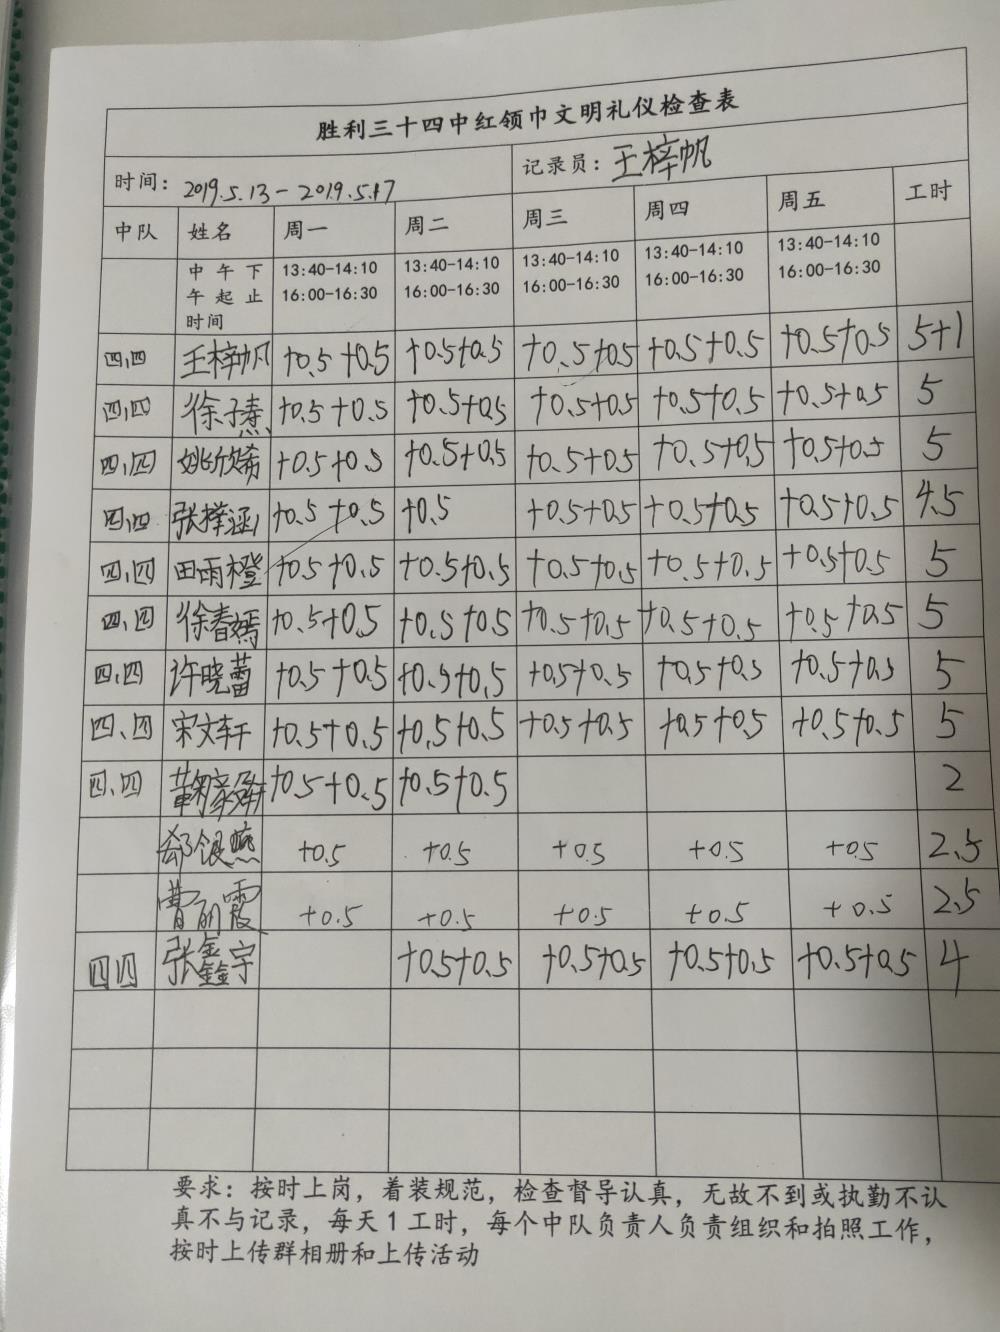 胜利三十四中红领巾文明礼仪检查表
时间: 2019.5.13-2019.5.17 记录员: 王梓帆
中队 姓名 周一 周二 周三 周四 周五 工时
中午下 13:40-14:10 13:40-14:10 13:40-14:10 13:40-14:10 13:40-14:10
午起止 16:00-16:30 16:00-16:30 16:00-16:30 16:00-16:30 16:00-16:30
时间
四.四 王梓帆 +0.5+0.5 +0.5+0.5 +0.5+0.5 +0.5+0.5 +0.5+0.5 5+1
四.四 徐子熹 +0.5+0.5 +0.5+0.5 +0.5+0.5 +0.5+0.5 +0.5+0.5 5
四.四 姚欣 +0.5+0.5 +0.5+0.5 +0.5+0.5 +0.5+0.5 +0.5+0.5 5
四.四 张 涵 +0.5+0.5 +0.5 +0.5+0.5 +0.5+0.5 +0.5+0.5 4.5
四.四 田雨橙 +0.5+0.5 +0.5+0.5 +0.5+0.5 +0.5+0.5 +0.5+0.5 5
四.四 徐春嫣 +0.5+0.5 +0.5+0.5 +0.5+0.5 +0.5+0.5 +0.5+0.5 5
四.四 许晓蕾 +0.5+0.5 +0.5+0.5 +0.5+0.5 +0.5+0.5 +0.5+0.5 5
四、四 宋文轩 +0.5+0.5 +0.5+0.5 +0.5+0.5 +0.5+0.5 +0.5+0.5 5
四、四 +0.5+0.5 +0.5+0.5 2
郄银燕 +0.5 +0.5 +0.5 +0.5 +0.5 2.5
曹丽霞 +0.5 +0.5 +0.5 +0.5 +0.5 2.5
四四 张鑫宇 +0.5+0.5 +0.5+0.5 +0.5+0.5 +0.5+0.5 4
要求：按时上岗，着装规范，检查督导认真，无故不到或执勤不认
真不与记录，每天1工时，每个中队负责人负责组织和拍照工作，
按时上传群相册和上传活动